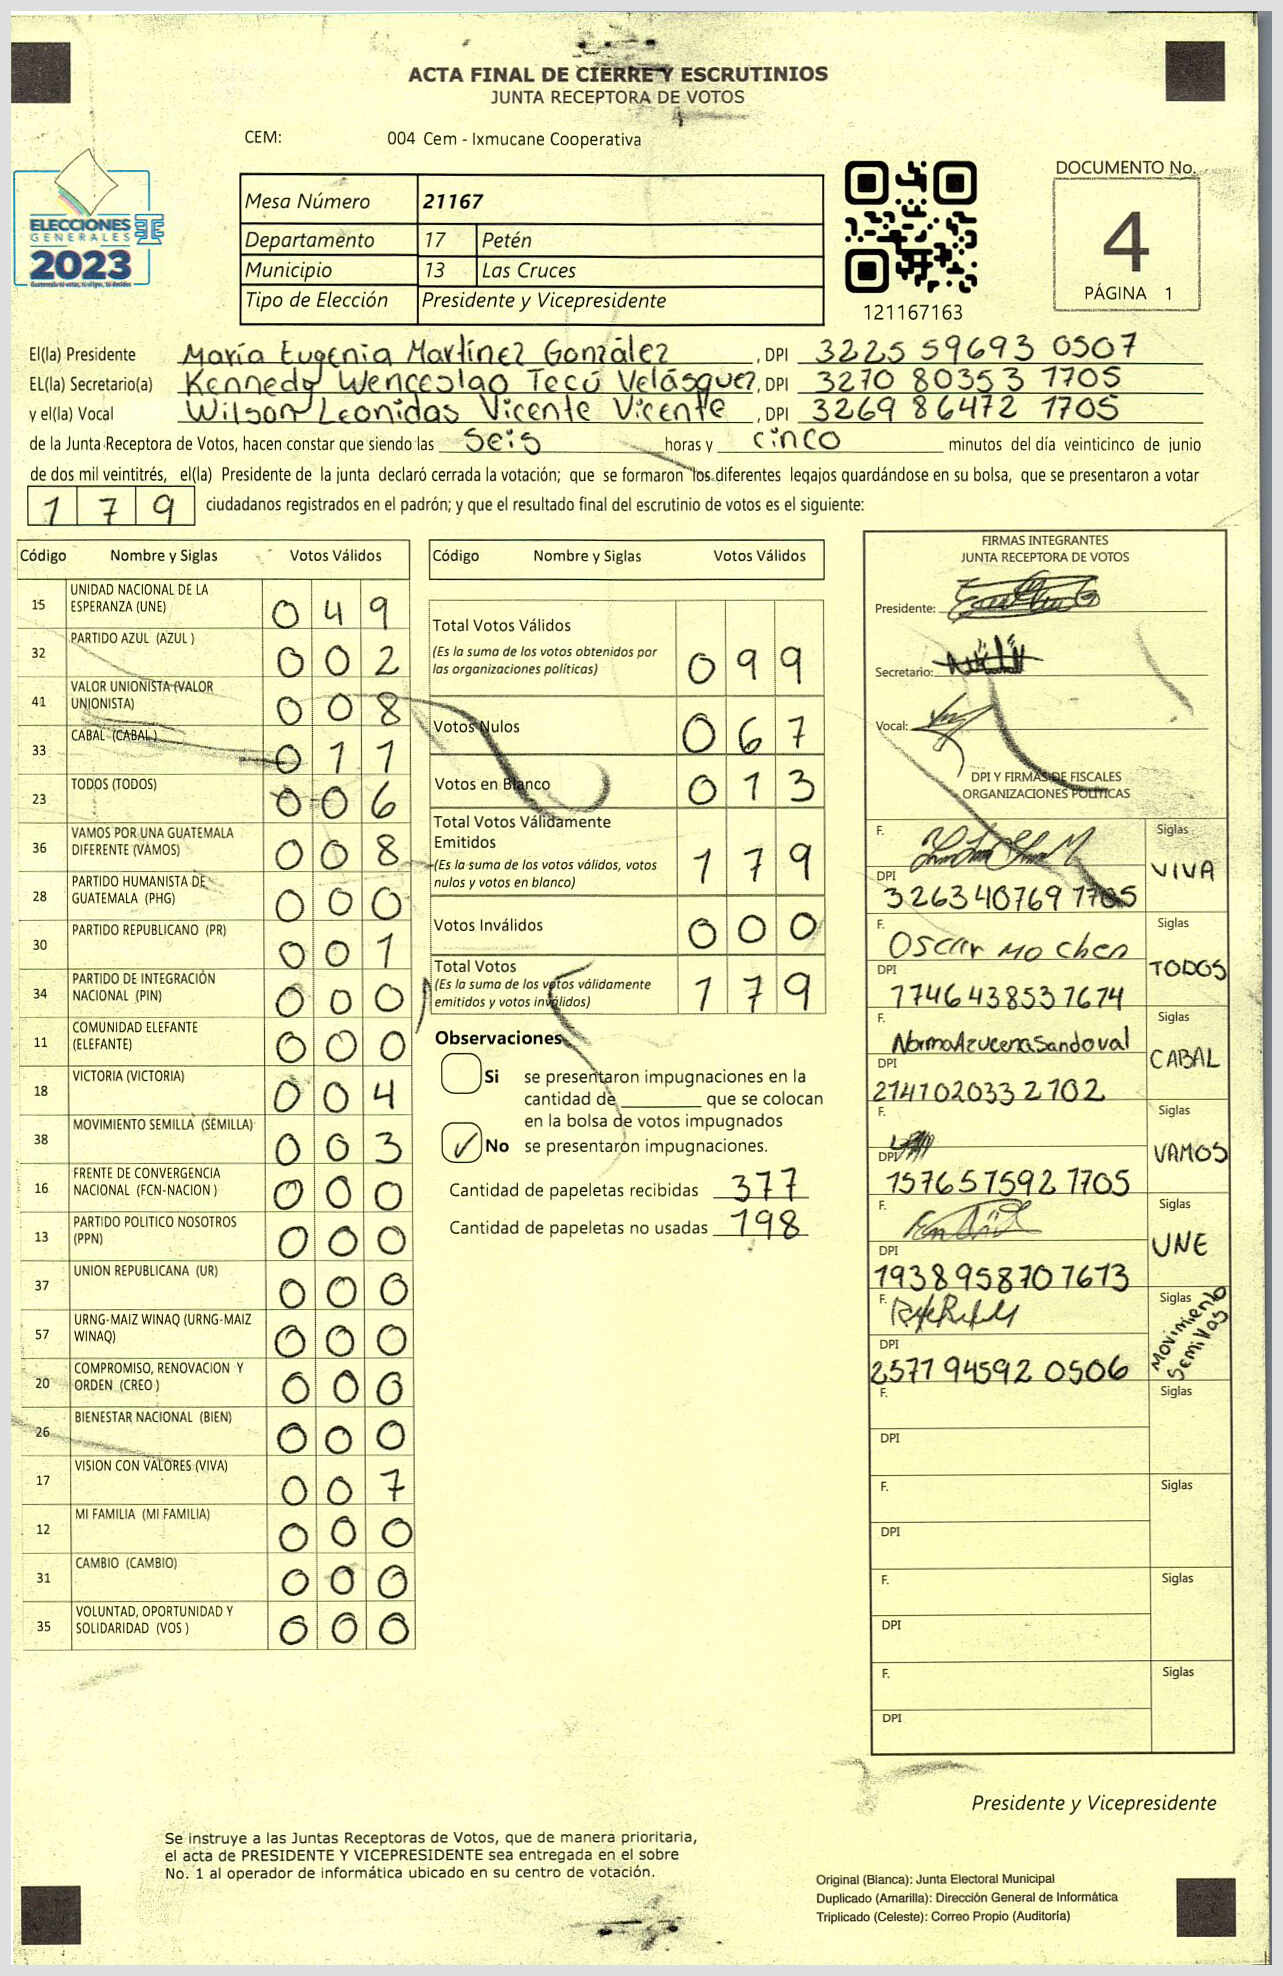 ACTA FINAL DE CIERRE Y ESCRUTINIOS
JUNTA RECEPTORA DE VOTOS
CEM: 004 Cem - Ixmucane Cooperativa
ELECCIONES
GENERALES
2023
Mesa Número 21167
Departamento 17 Petén
Municipio 13 Las Cruces
Tipo de Elección Presidente y Vicepresidente
121167163
DOCUMENTO No.
4
PÁGINA 1
El(la) Presidente María Eugenia Martínez González, DPI 3225 59693 0507
EL(la) Secretario(a) Kennedy Wenceslao Tecú Velásquez, DPI 3270 80353 1705
y el(la) Vocal Wilson Leonidas Vicente Vicente, DPI 3269 86472 1705
de la Junta Receptora de Votos, hacen constar que siendo las seis horas y cinco minutos del día veinticinco de junio
de dos mil veintitrés, el(la) Presidente de la junta declaró cerrada la votación; que se formaron los diferentes legajos guardándose en su bolsa, que se presentaron a votar
179 ciudadanos registrados en el padrón; y que el resultado final del escrutinio de votos es el siguiente:
Código Nombre y Siglas Votos Válidos
15 UNIDAD NACIONAL DE LA ESPERANZA (UNE) 049
32 PARTIDO AZUL (AZUL ) 002
41 VALOR UNIONISTA (VALOR UNIONISTA) 008
33 CABAL (CABAL ) 011
23 TODOS (TODOS) 006
36 VAMOS POR UNA GUATEMALA DIFERENTE (VAMOS) 008
28 PARTIDO HUMANISTA DE GUATEMALA (PHG) 000
30 PARTIDO REPUBLICANO (PR) 001
34 PARTIDO DE INTEGRACIÓN NACIONAL (PIN) 000
11 COMUNIDAD ELEFANTE (ELEFANTE) 000
18 VICTORIA (VICTORIA) 004
38 MOVIMIENTO SEMILLA (SEMILLA) 003
16 FRENTE DE CONVERGENCIA NACIONAL (FCN-NACION ) 000
13 PARTIDO POLITICO NOSOTROS (PPN) 000
37 UNION REPUBLICANA (UR) 000
57 URNG-MAIZ WINAQ (URNG-MAIZ WINAQ) 000
20 COMPROMISO, RENOVACION Y ORDEN (CREO ) 000
26 BIENESTAR NACIONAL (BIEN) 000
17 VISION CON VALORES (VIVA) 007
12 MI FAMILIA (MI FAMILIA) 000
31 CAMBIO (CAMBIO) 000
35 VOLUNTAD, OPORTUNIDAD Y SOLIDARIDAD (VOS ) 000
Código Nombre y Siglas Votos Válidos
Total Votos Válidos 099
(Es la suma de los votos obtenidos por
las organizaciones políticas)
Votos Nulos 067
Votos en Blanco 013
Total Votos Válidamente
Emitidos 179
(Es la suma de los votos válidos, votos
nulos y votos en blanco)
Votos Inválidos 000
Total Votos 179
(Es la suma de los votos válidamente
emitidos y votos inválidos)
Observaciones
Si se presentaron impugnaciones en la
cantidad de ________ que se colocan
en la bolsa de votos impugnados
No se presentaron impugnaciones.
Cantidad de papeletas recibidas 377
Cantidad de papeletas no usadas 198
FIRMAS INTEGRANTES
JUNTA RECEPTORA DE VOTOS
Presidente:
Secretario:
Vocal:
DPI Y FIRMAS DE FISCALES
ORGANIZACIONES POLÍTICAS
F. Siglas VIVA
DPI 3263 40769 1705
F. Oscar Mo Chen Siglas TODOS
DPI 1746438537674
F. Norma Azucena Sandoval Siglas CABAL
DPI 2141020332102
F. Siglas VAMOS
DPI 1576575921705
F. Siglas UNE
DPI 1938958701613
F. Siglas Movimiento Semillas
DPI 2571 94592 0506
F. Siglas
DPI
F. Siglas
DPI
F. Siglas
DPI
F. Siglas
DPI
Presidente y Vicepresidente
Se instruye a las Juntas Receptoras de Votos, que de manera prioritaria,
el acta de PRESIDENTE Y VICEPRESIDENTE sea entregada en el sobre
No. 1 al operador de informática ubicado en su centro de votación.
Original (Blanca): Junta Electoral Municipal
Duplicado (Amarilla): Dirección General de Informática
Triplicado (Celeste): Correo Propio (Auditoría)